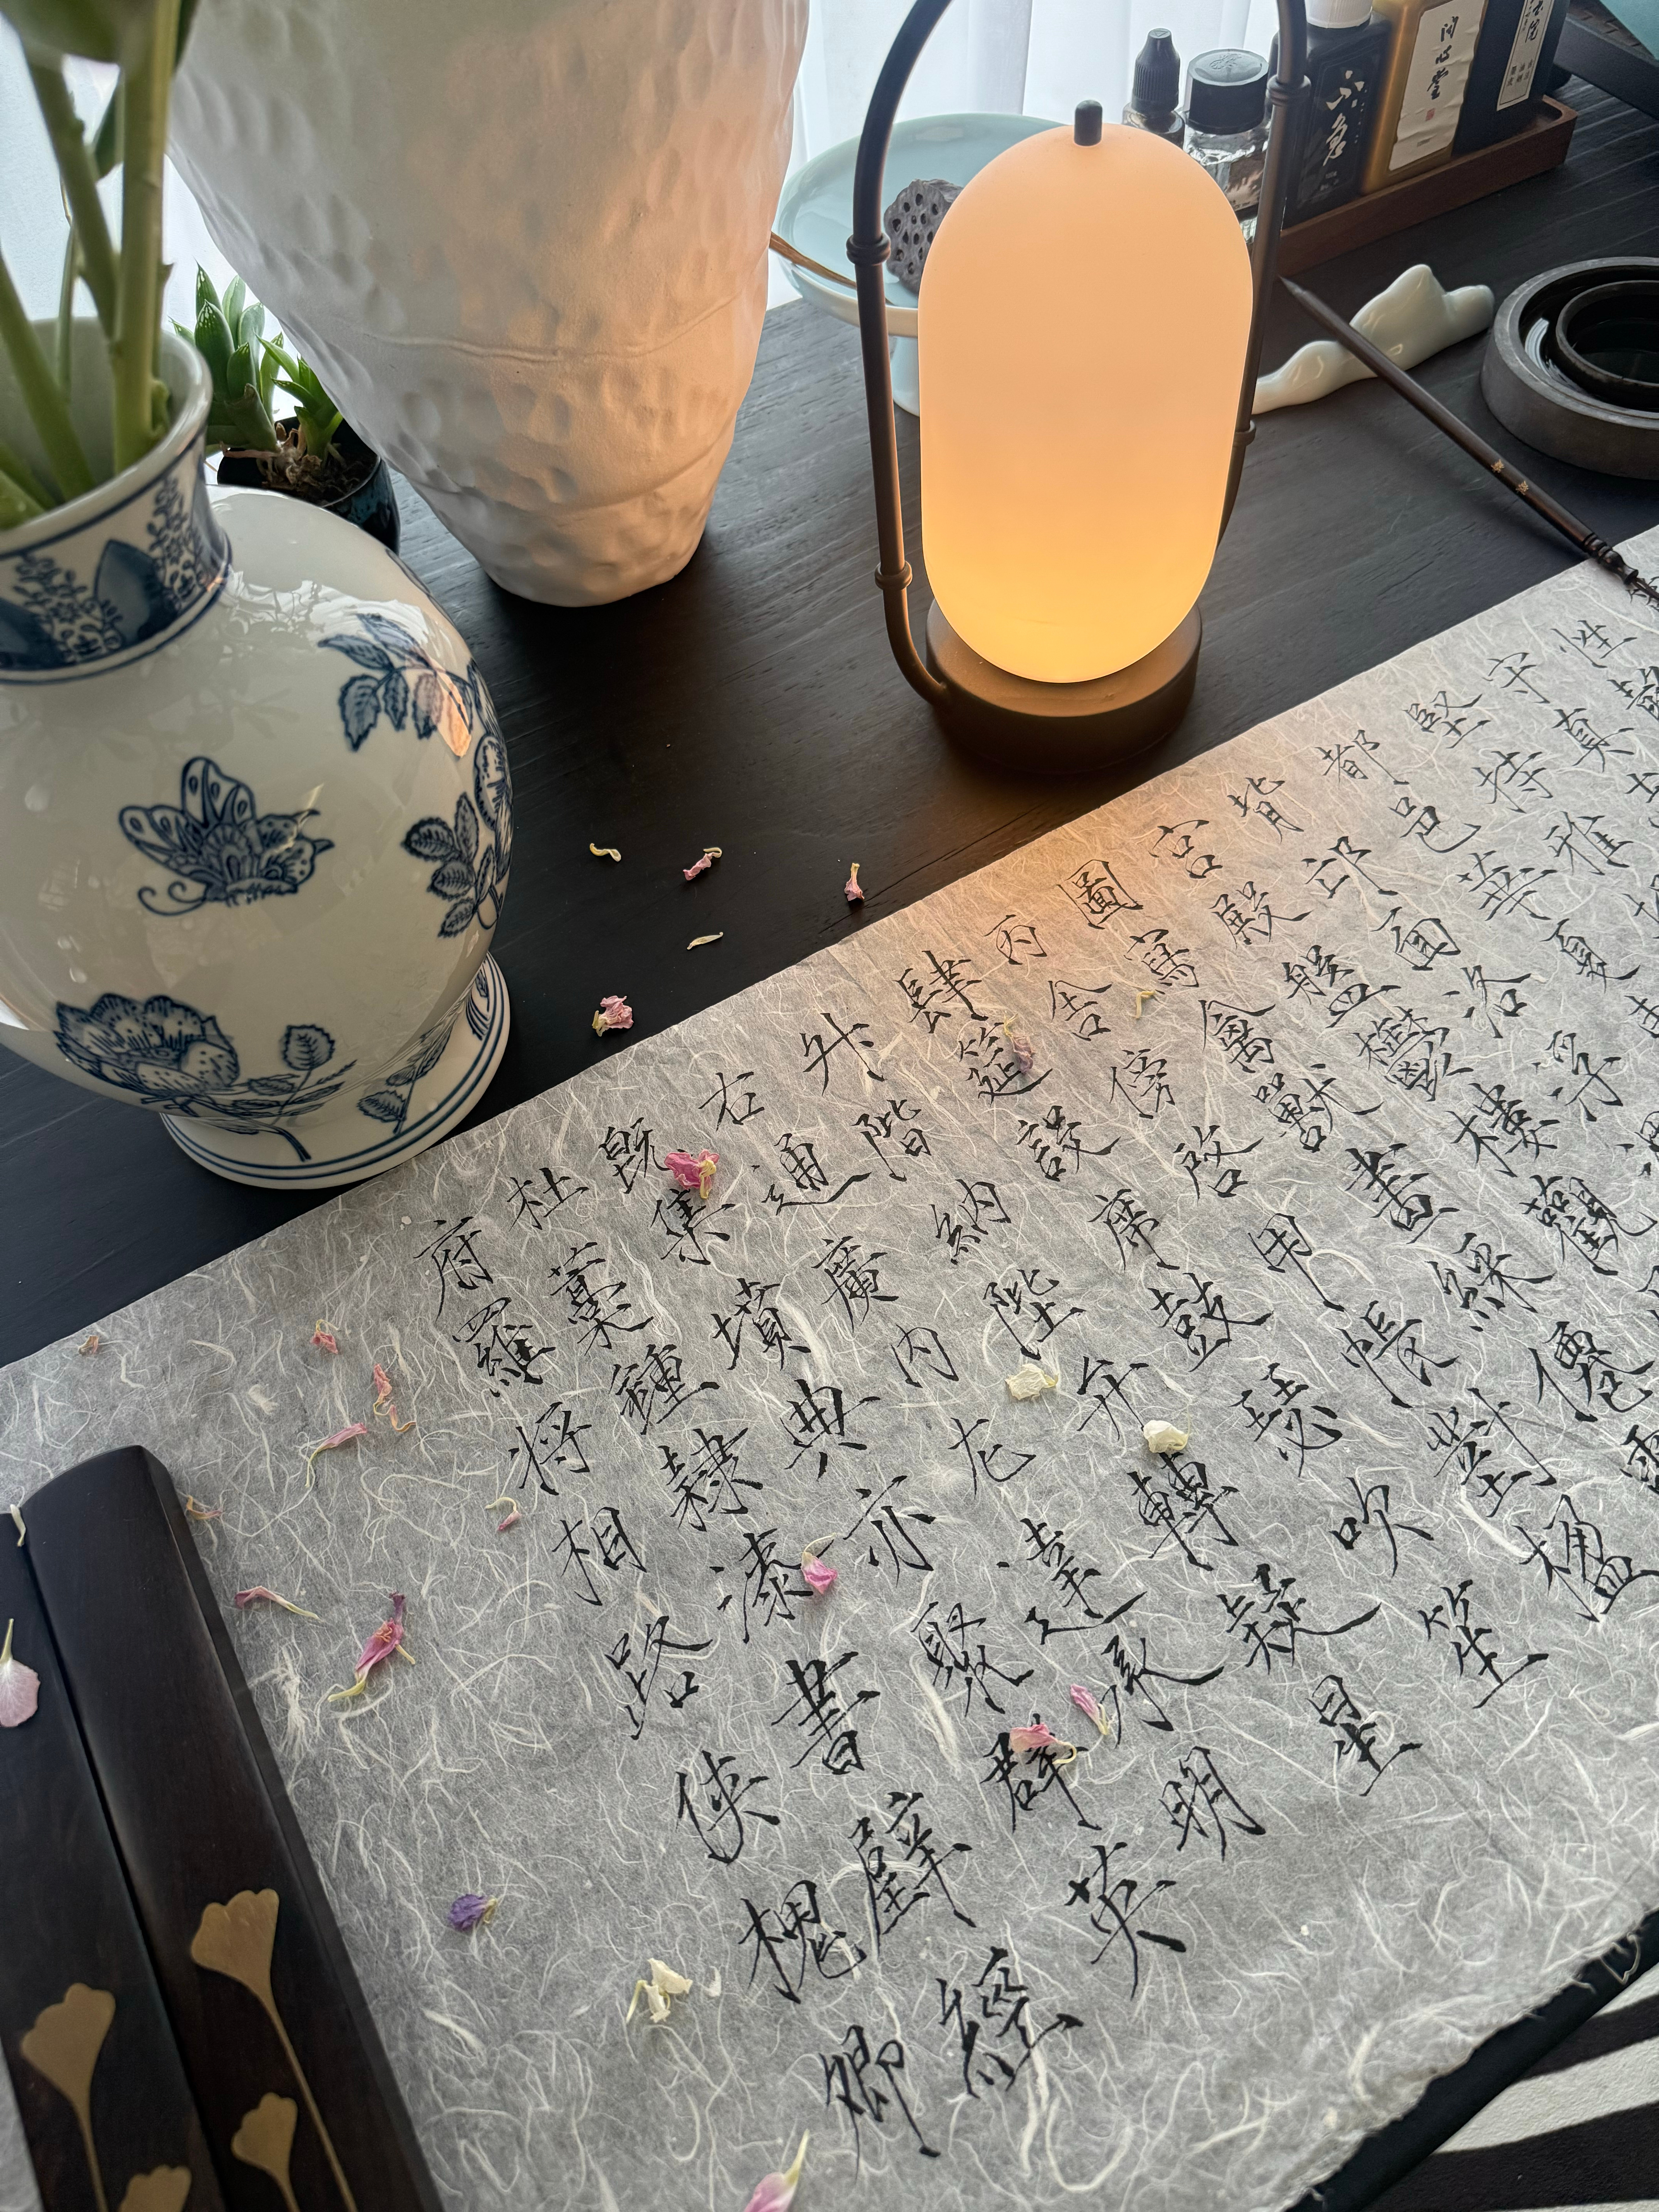 性靜
守真
堅持雅
都邑華夏
背邙面洛浮渭
宮殿盤鬱樓觀
圖寫禽獸畫綵僊靈
丙舍傍啓甲帳對楹
肆筵設席鼓瑟吹笙
升階納陛弁轉疑星
右通廣內左達承明
既集墳典亦聚群英
杜藁鍾隸漆書壁經
府羅将相路侠槐卿
不急
问心堂